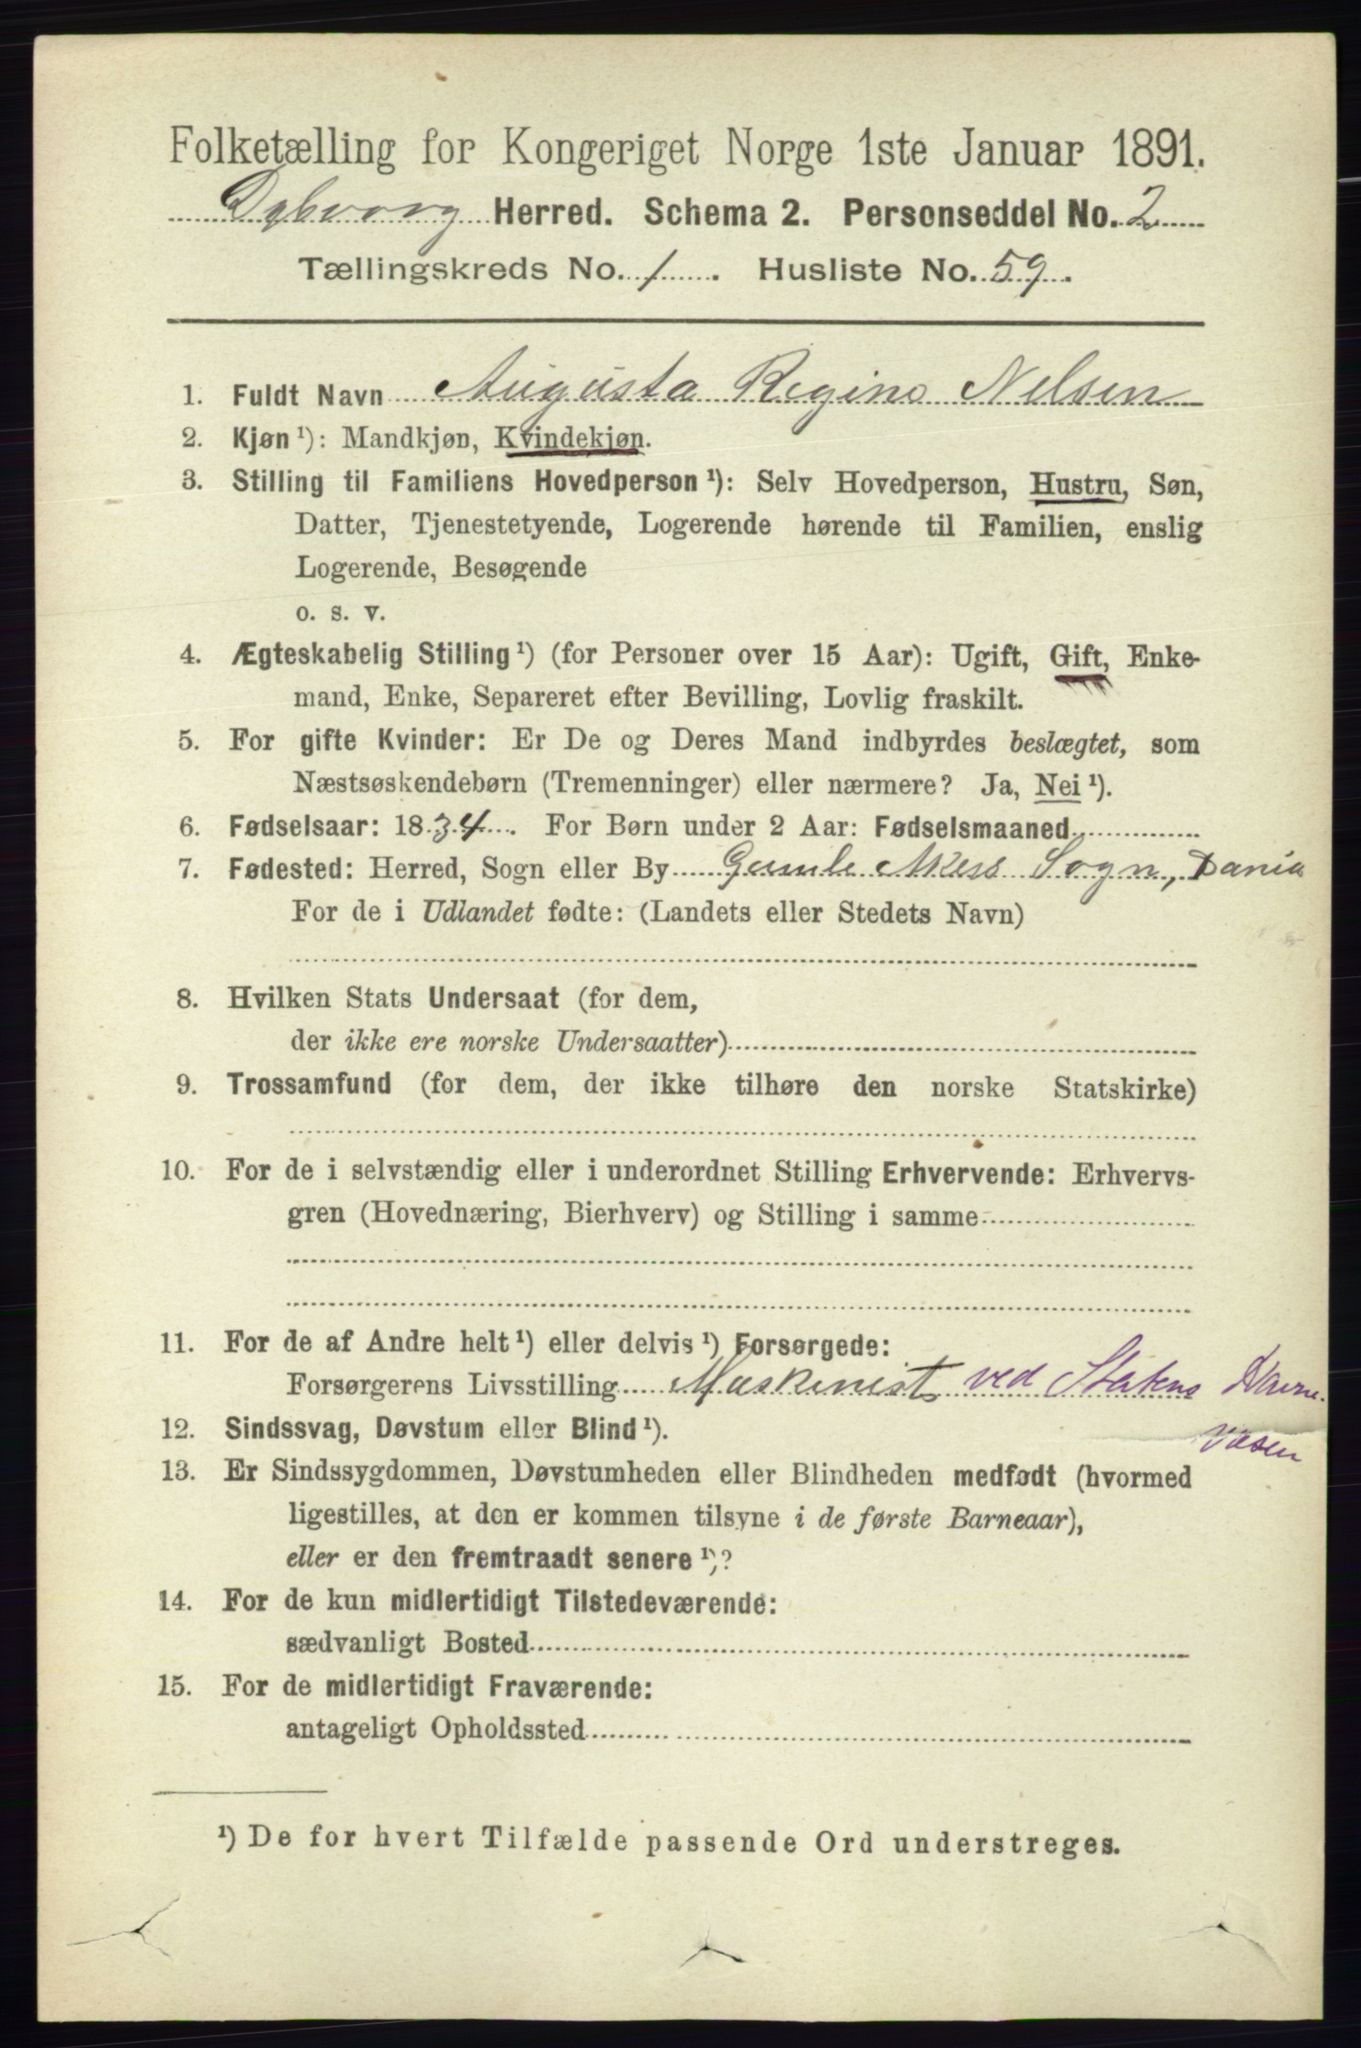 Folketælling for Kongeriget Norge 1ste Januar 1891.
Dybvaag Herred. Schema 2. Personseddel No. 2
Tællingskreds No. 1. Husliste No. 59.
1. Fuldt Navn Augusta Regine Nelsen
2. Kjøn ¹): Mandkjøn, Kvindekjøn.
3. Stilling til Familiens Hovedperson ¹): Selv Hovedperson, Hustru, Søn,
Datter, Tjenestetyende, Logerende hørende til Familien, enslig
Logerende, Besøgende
o. s. v.
4. Ægteskabelig Stilling ¹) (for Personer over 15 Aar): Ugift, Gift, Enke-
mand, Enke, Separeret efter Bevilling, Lovlig fraskilt.
5. For gifte Kvinder: Er De og Deres Mand indbyrdes beslægtet, som
Næstsøskendebørn (Tremenninger) eller nærmere? Ja, Nei ¹).
6. Fødselsaar: 1834. For Børn under 2 Aar: Fødselsmaaned
7. Fødested: Herred, Sogn eller By Gamle Sogn, Dania
For de i Udlandet fødte: (Landets eller Stedets Navn)
8. Hvilken Stats Undersaat (for dem,
der ikke ere norske Undersaatter)
9. Trossamfund (for dem, der ikke tilhøre den norske Statskirke)
10. For de i selvstændig eller i underordnet Stilling Erhvervende: Erhvervs-
gren (Hovednæring, Bierhverv) og Stilling i samme
11. For de af Andre helt ¹) eller delvis ¹) Forsørgede:
Forsørgerens Livsstilling Maskinist ved Statens Havne-
væsen
12. Sindssvag, Døvstum eller Blind ¹).
13. Er Sindssygdommen, Døvstumheden eller Blindheden medfødt (hvormed
ligestilles, at den er kommen tilsyne i de første Barneaar),
eller er den fremtraadt senere ¹)?
14. For de kun midlertidigt Tilstedeværende:
sædvanligt Bosted
15. For de midlertidigt Fraværende:
antageligt Opholdssted
¹) De for hvert Tilfælde passende Ord understreges.